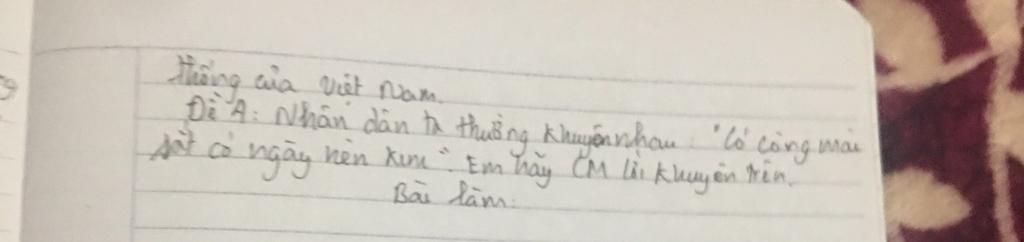 thống của Việt Nam.
Đề 4: Nhân dân ta thường khuyên nhau: "Có công mài
sắt có ngày nên kim". Em hãy CM lời khuyên trên.
Bài làm: